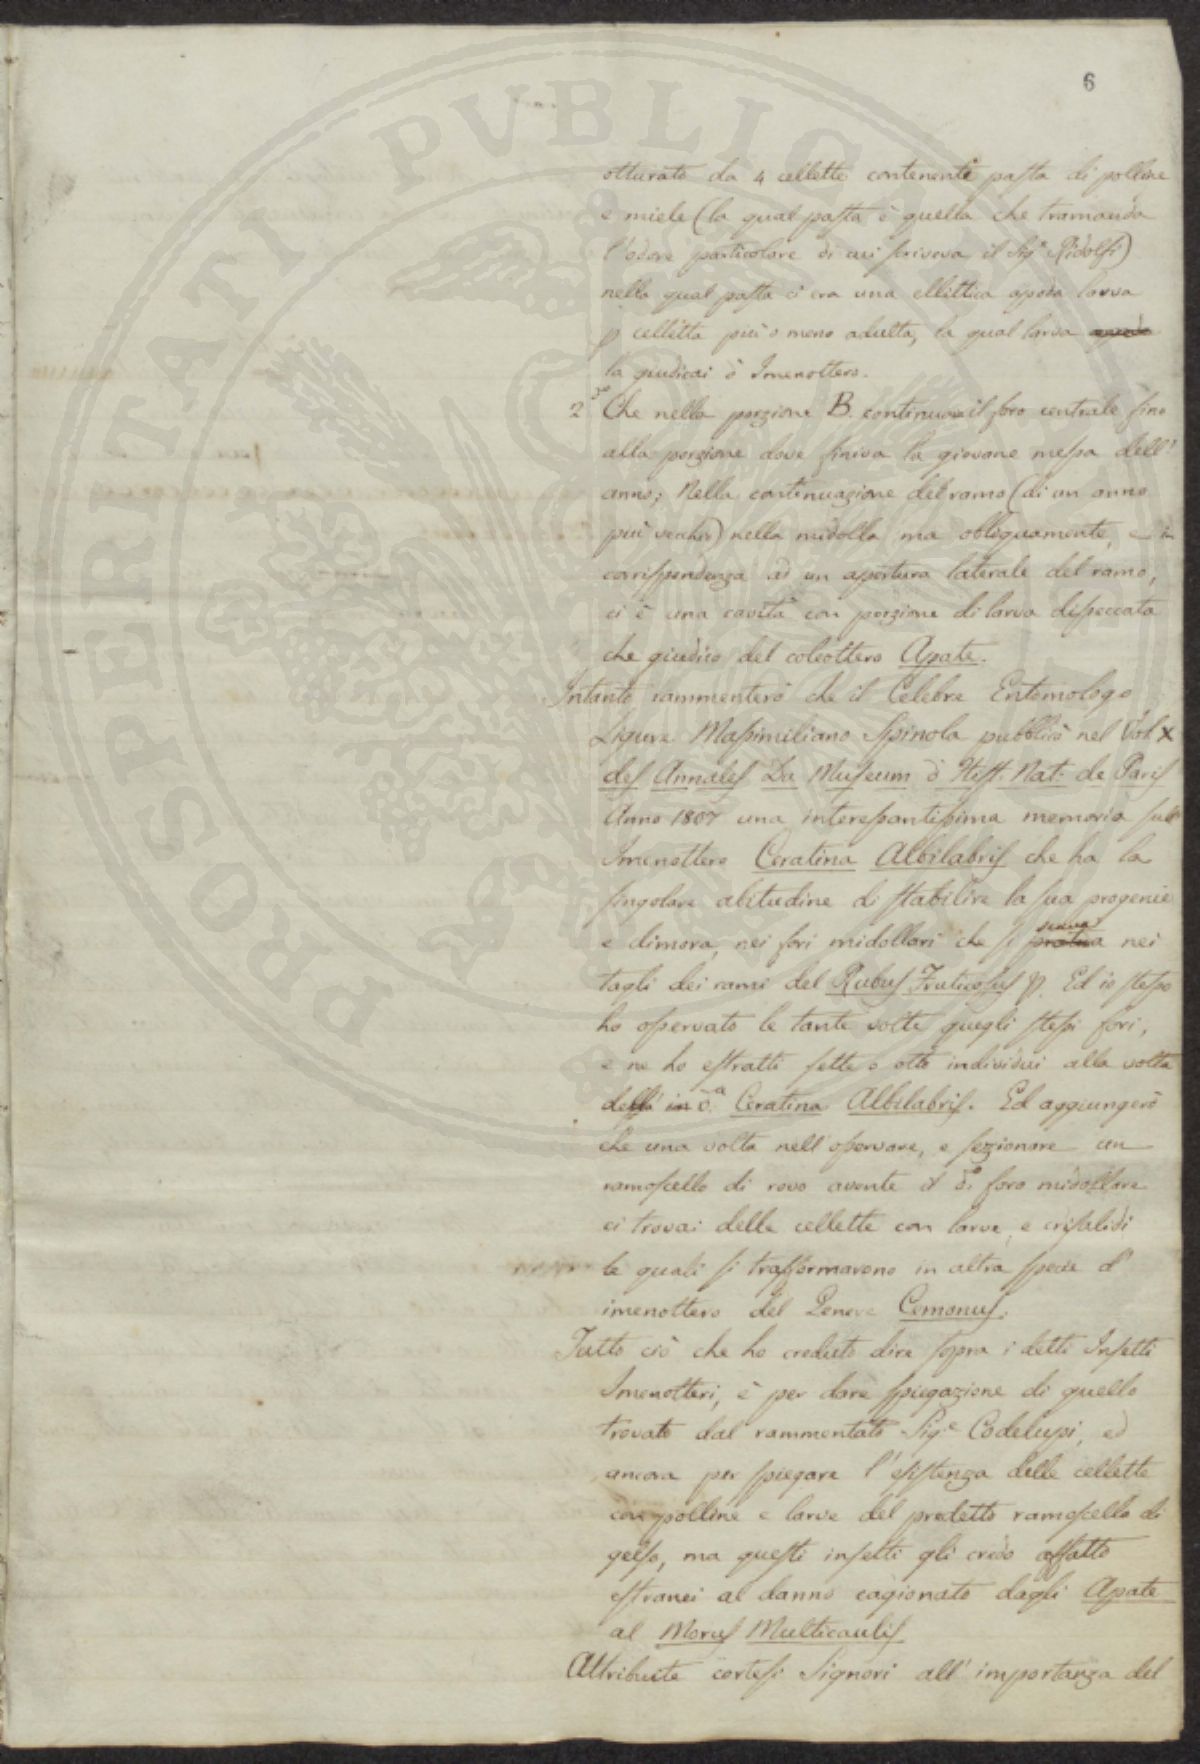 6
otturato da 4 cellette contenente pasta di polline
e miele (la qual pasta è quella che tramanda
l'odore particolare di cui scriveva il Sig.e Ridolfi)
nella qual pasta ci era una ellittica apoda larva
p celletta più o meno adulta, la qual larva
la giudicai d'Imenottero.
2° Che nella porzione B. continuava il foro centrale fino
alla porzione dove finiva la giovane messa dell'
anno; Nella continuazione del ramo (di un anno
più vecchio) nella midolla ma obliquamente, e in
corrispondenza ad un apertura laterale del ramo,
ci è una cavità con porzione di larva disseccata
che giudico del coleottero Apate.
Intanto rammenterò che il Celebre Entomologo
Ligure Massimiliano Spinola pubblicò nel Vol X
des Annales Du Museum d'Hist. Nat. de Paris
Anno 1807 una interessantissima memoria sull
Imenottero Ceratina Albilabris che ha la
singolare abitudine di stabilire la sua progenie
e dimora, nei fori midollari che si scava nei
tagli dei rami del Rubus Fruticosus p. Ed io stesso
ho osservato le tante volte quegli stessi fori,
e ne ho estratti sette o otto individui alla volta
della d.a Ceratina Albilabris. Ed aggiungerò
che una volta nell'osservare, e sezionare un
ramoscello di rovo avente il d.o foro midollare
ci trovai delle cellette con larve, e crisalidi
le quali si trasformarono in altra specie d'
imenottero del Genere Cemonus.
Tutto ciò che ho creduto dire sopra i detti Insetti
Imenotteri, è per dare spiegazione di quello
trovato dal rammentato Sig.e Codelupi, ed
ancora per spiegare l'esistenza delle cellette
con polline e larve del predetto ramoscello di
gelso, ma questi insetti gli credo affatto
estranei al danno cagionato dagli Apate
al Morus Multicaulis
Attribuite cortesi Signori all'importanza del
PROSPERITATI PVBLICAE